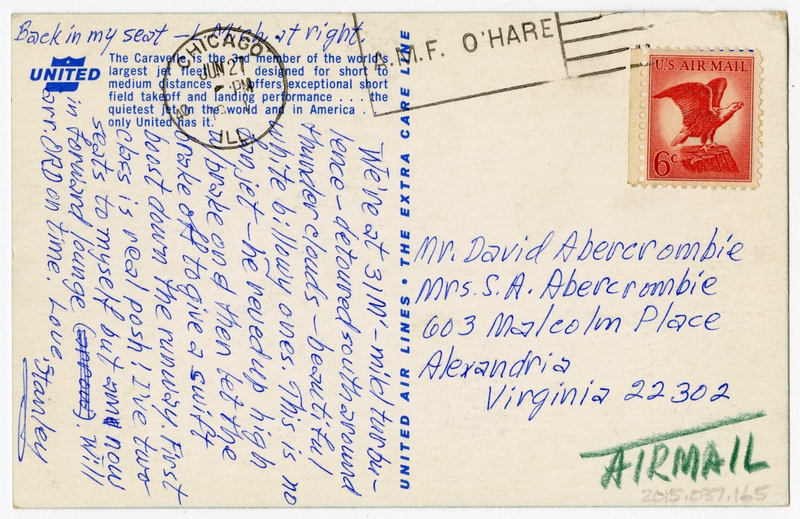 Back in my seat — L. Mich. at right.
UNITED
The Caravelle is the 3rd member of the world's
largest jet fleet designed for short to
medium distances offers exceptional short
field takeoff and landing performance . . . the
quietest jet in the world and in America . .
only United has it.
CHICAGO
JUN 21
PM
ILL
A.M.F. O'HARE
U.S. AIR MAIL
6c
We're at 31M'—mild turbu-
lence—detoured south around
thunderclouds—beautiful
white billowy ones. This is no
jet—he revved up high
w/brake on & then let the
brake off to give a swift
boost down the runway. First
class is real posh! I've two
seats to myself but am now
in forward lounge. Will
arr. ORD on time. Love,
Stanley
UNITED AIR LINES • THE EXTRA CARE LINE
Mr. David Abercrombie
Mrs. S. A. Abercrombie
603 Malcolm Place
Alexandria
Virginia 22302
AIRMAIL
2015.037.165